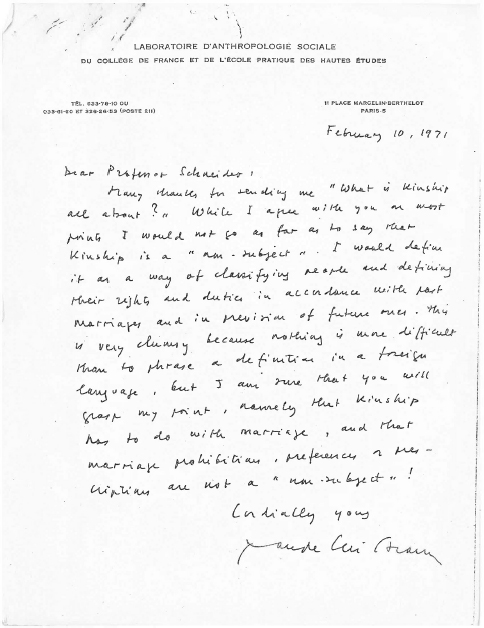 LABORATOIRE D'ANTHROPOLOGIE SOCIALE
DU COLLÈGE DE FRANCE ET DE L'ÉCOLE PRATIQUE DES HAUTES ÉTUDES
TÉL. 633-78-10 OU
033-61-60 ET 326-26-53 (POSTE 211)
11 PLACE MARCELIN-BERTHELOT
PARIS-5
February 10, 1971
Dear Professor Schneider,
Many thanks for sending me "What is Kinship
all about?" While I agree with you on most
points I would not go as far as to say that
Kinship is a "non-subject". I would define
it as a way of classifying people and defining
their rights and duties in accordance with past
marriages and in prevision of future ones. This
is very clumsy because nothing is more difficult
than to phrase a definition in a foreign
language, but I am sure that you will
grasp my point, namely that Kinship
has to do with marriage, and that
marriage prohibitions, preferences or pres-
criptions are not a "non-subject"!
Cordially yours
Claude Lévi-Strauss